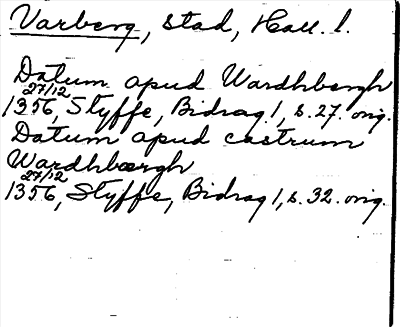 Varberg, stad, Hall. l.
Datum apud Wardhbergh
27/12
1356, Styffe, Bidrag 1, s. 27. orig.
Datum apud castrum
Wardhbærgh
27/12
1356, Styffe, Bidrag 1, s. 32. orig.